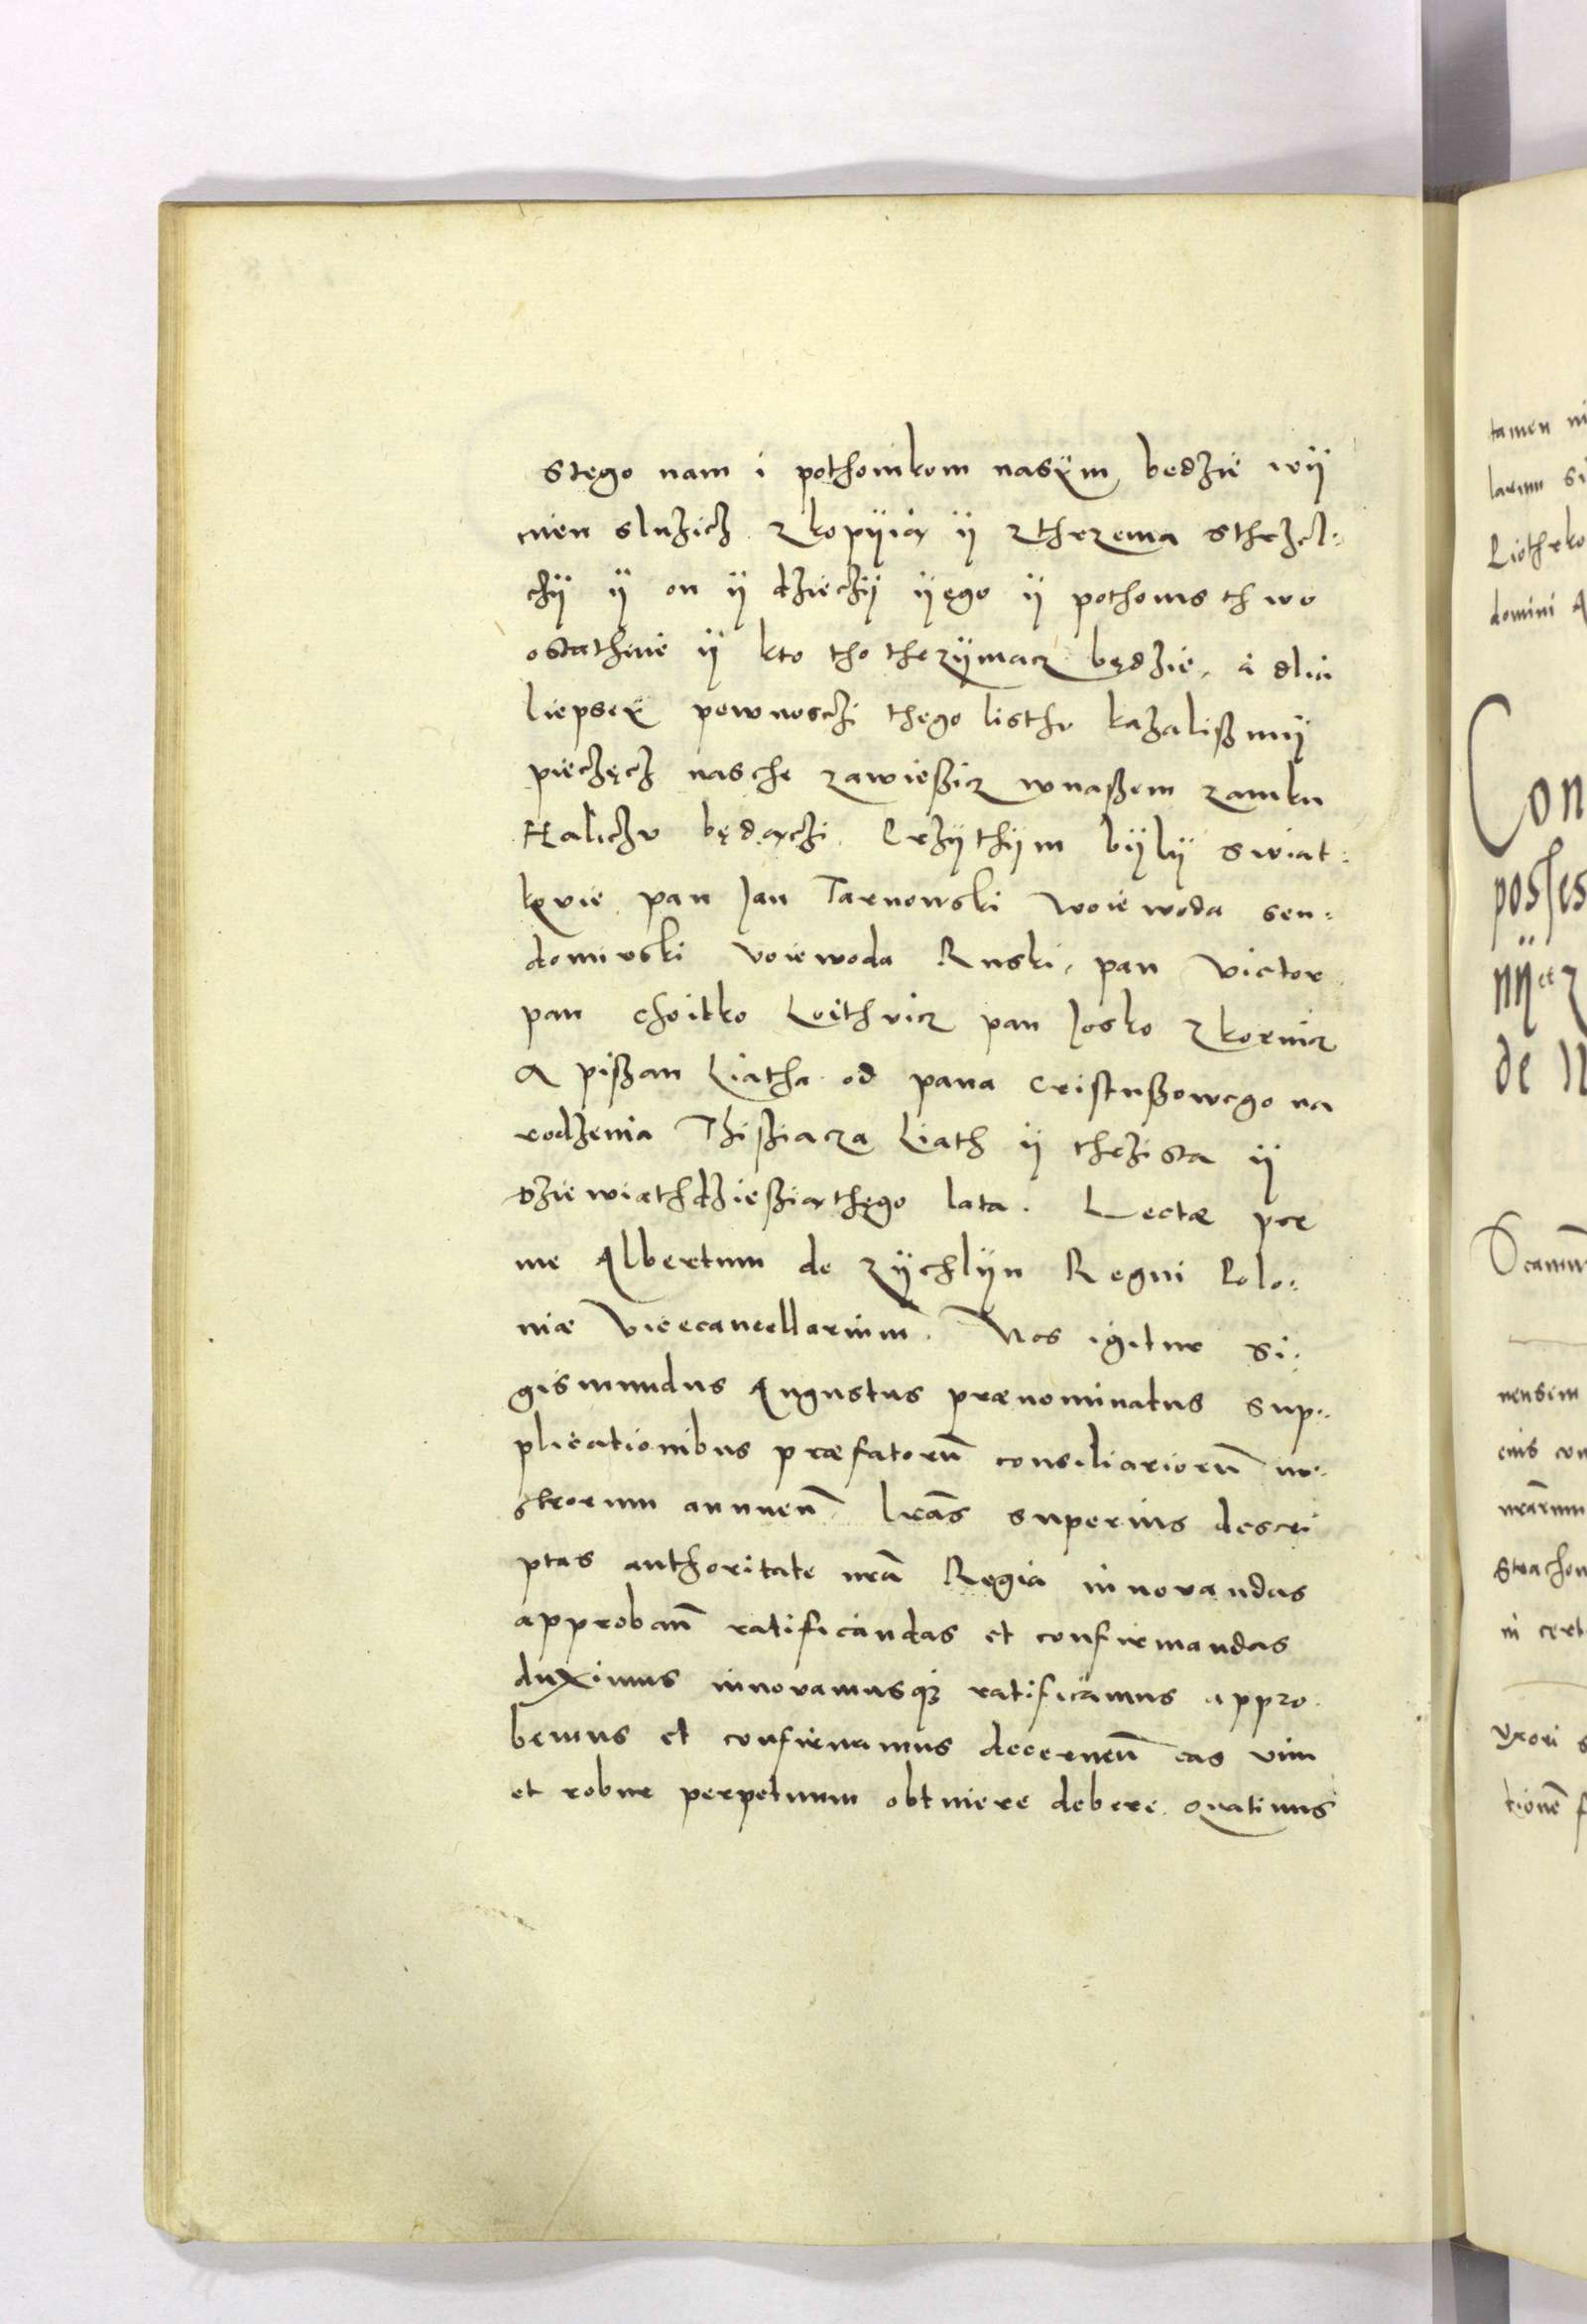 stego nam i pothonikom nasÿm bedzie wÿ
nien sluzicz zkopÿią ÿ zthrzema strzel⸗
czÿ ÿ on ÿ dzieczÿ ÿego ÿ pothomsthwo
ostathnie ÿ kto tho thrzÿmacz będzie, a dlia
liepseÿ pewnosczi thego listhu kazalißmÿ
pieczęcz nasche zawießicz wnaßem zamku
Haliczu będączi. Przÿthÿm bÿlÿ swiat⸗
kovie pan Jan Tarnowski woiewoda sen⸗
domirski voiewoda Ruski, pan Victor
pan choitko Loithvicz pan Josko zkornicz
A pißan Liatha od pana Cristußowego na
rodzenia Thißiacza Liath ÿ thrzista ÿ
dziewiathdzießiąthego lata. Lectæ per
me Albertum de Zÿchlÿn Regni Polo⸗
niæ Vicecancellarium. Nos igitur Si⸗
gismundus Augustus prænominatus sup⸗
plicationibus præfatorū consiliariorū no⸗
strorum annuen̄ lrās superius descri
ptas authoritate nrā Regia innovandas
approban̄ ratificandas et confirmandas
duximus innovamusqꝫ ratificamus appro
bamus et confirmamus decernen̄ eas vim
et robur perpetuum obtinere debere quatinus
tamen
domini
Con
posses
de
nensem
in cert